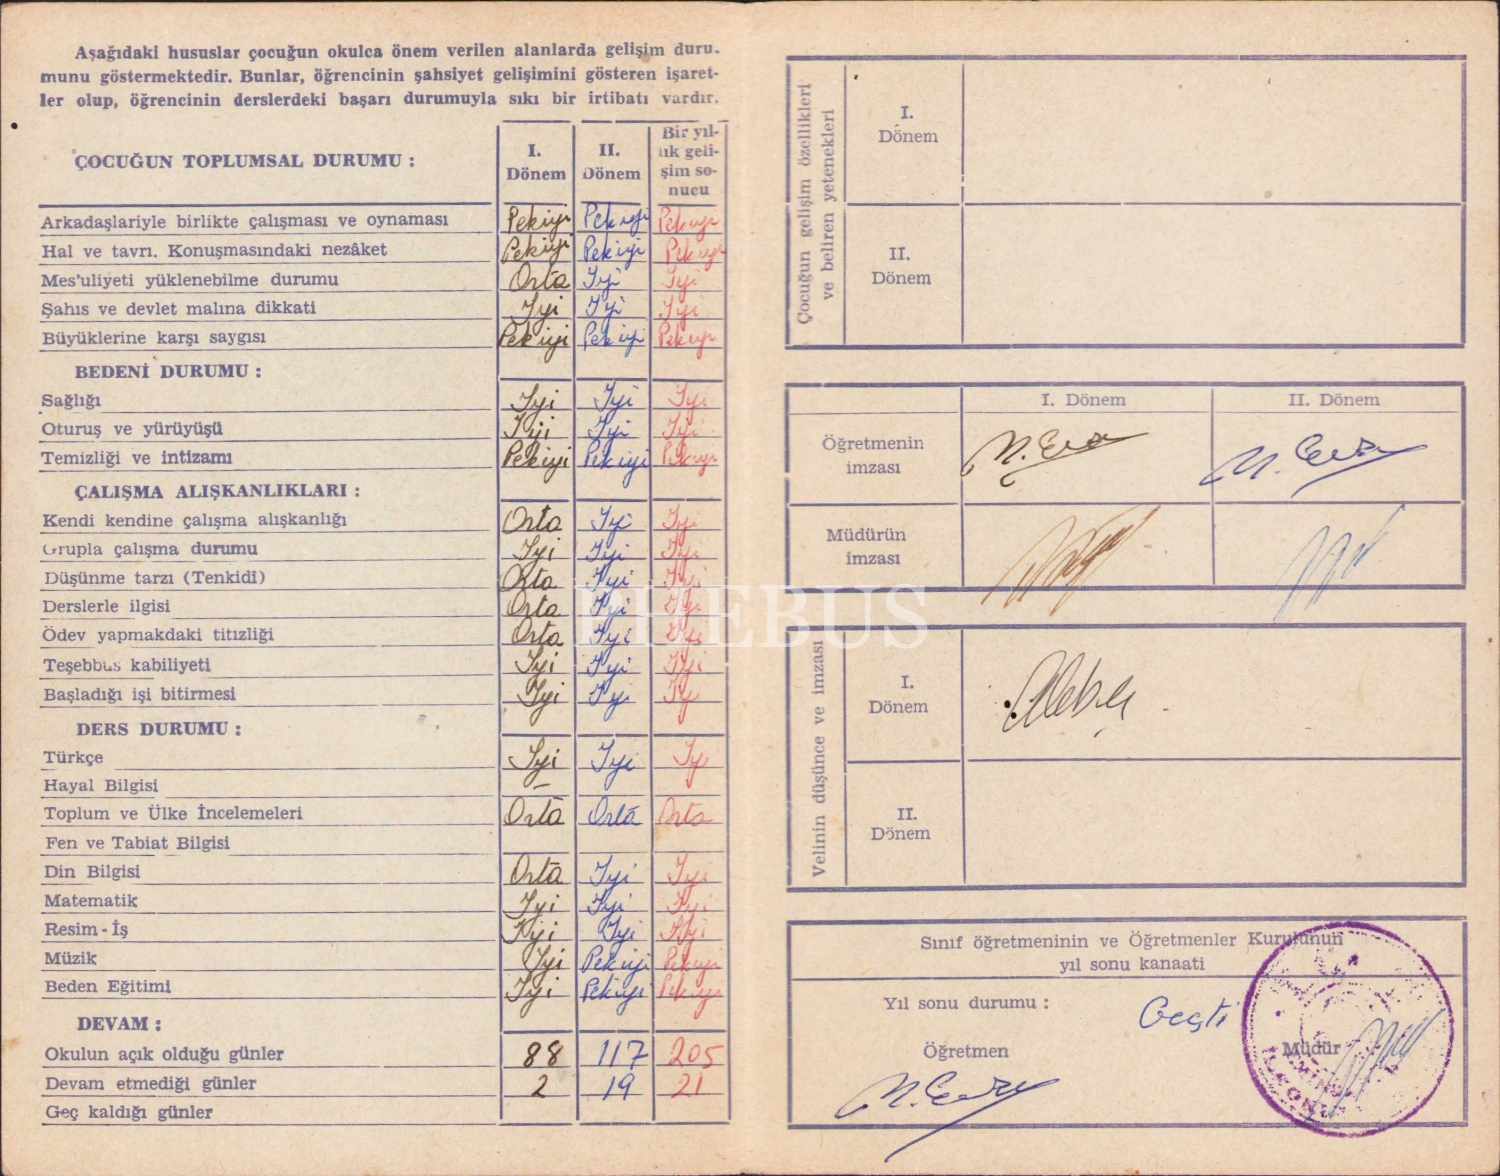 Aşağıdaki hususlar çocuğun okulca önem verilen alanlarda gelişim duru-
munu göstermektedir. Bunlar, öğrencinin şahsiyet gelişimini gösteren işaret-
ler olup, öğrencinin derslerdeki başarı durumuyla sıkı bir irtibatı vardır.
ÇOCUĞUN TOPLUMSAL DURUMU :
I. Dönem
II. Dönem
Bir yıl-
lık geli-
şim so-
nucu
Arkadaşlariyle birlikte çalışması ve oynaması Pekiyi Pekiyi Pekiyi
Hal ve tavrı. Konuşmasındaki nezâket Pekiyi Pekiyi Pekiyi
Mes'uliyeti yüklenebilme durumu Orta İyi İyi
Şahıs ve devlet malına dikkati İyi İyi İyi
Büyüklerine karşı saygısı Pekiyi Pekiyi Pekiyi
BEDENİ DURUMU :
Sağlığı İyi İyi İyi
Oturuş ve yürüyüşü İyi İyi İyi
Temizliği ve intizamı Pekiyi Pekiyi Pekiyi
ÇALIŞMA ALIŞKANLIKLARI :
Kendi kendine çalışma alışkanlığı Orta İyi İyi
Grupla çalışma durumu İyi İyi İyi
Düşünme tarzı (Tenkidî) Orta İyi İyi
Derslerle ilgisi Orta İyi İyi
Ödev yapmakdaki titizliği Orta İyi İyi
Teşebbüs kabiliyeti İyi İyi İyi
Başladığı işi bitirmesi İyi İyi İyi
DERS DURUMU :
Türkçe İyi İyi İyi
Hayal Bilgisi
Toplum ve Ülke İncelemeleri Orta Orta Orta
Fen ve Tabiat Bilgisi
Din Bilgisi Orta İyi İyi
Matematik İyi İyi İyi
Resim - İş İyi İyi İyi
Müzik İyi Pekiyi Pekiyi
Beden Eğitimi İyi Pekiyi Pekiyi
DEVAM :
Okulun açık olduğu günler 88 117 205
Devam etmediği günler 2 19 21
Geç kaldığı günler
PHEBUS
Çocuğun gelişim özellikleri
ve beliren yetenekleri
I.
Dönem
II.
Dönem
I. Dönem II. Dönem
Öğretmenin
imzası
Müdürün
imzası
Velinin düşünce ve imzası
I.
Dönem
II.
Dönem
Sınıf öğretmeninin ve Öğretmenler Kurulunun
yıl sonu kanaati
Yıl sonu durumu : Geçti
Öğretmen Müdür